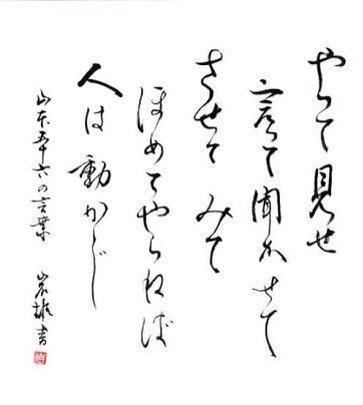 やって見せ
言って聞かせて
させてみて
ほめてやらねば
人は動かじ
山本五十六の言葉
岩雄書